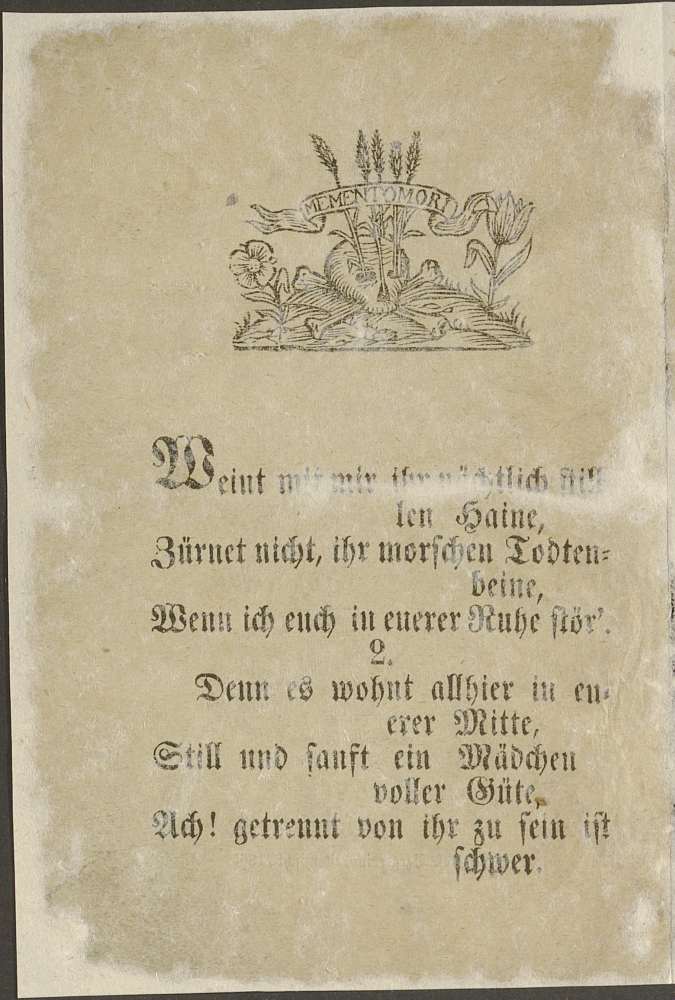 MEMENTO MORI
Weint mit mir ihr nächtlich still
len Haine,
Zürnet nicht, ihr morschen Todten-
beine,
Wenn ich euch in euerer Ruhe stör'.
2.
Denn es wohnt allhier in eu-
erer Mitte,
Still und sanft ein Mädchen
voller Güte,
Ach! getrennt von ihr zu sein ist
schwer.